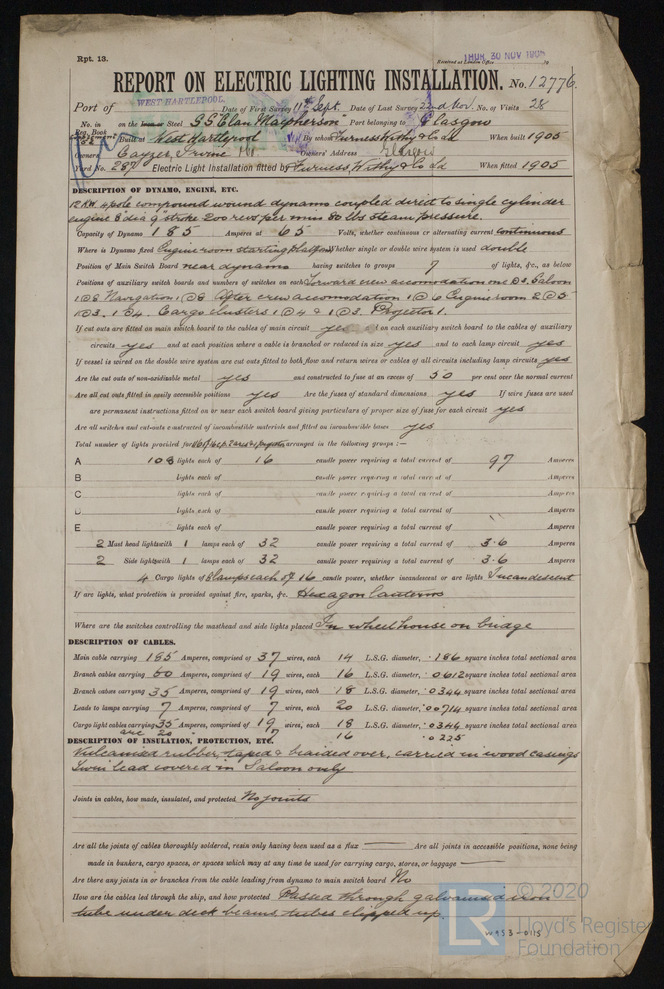 Rpt. 13.
Received at London Office
THUR. 30 NOV 1905
REPORT ON ELECTRIC LIGHTING INSTALLATION. No. 12776.
Port of WEST HARTLEPOOL. Date of First Survey 11th Sept. Date of Last Survey 22nd Nov. No. of Visits 28
No. in Reg. Book on the Iron or Steel S.S. "Clan Macpherson" Port belonging to Glasgow
Built at West Hartlepool By whom Furness Withy & Co Ld When built 1905
Owners Cayzer, Irvine Owners' Address Glasgow
Yard No. 287 Electric Light Installation fitted by Furness, Withy & Co Ld When fitted 1905
DESCRIPTION OF DYNAMO, ENGINE, ETC.
12 K.W. 4 pole compound wound dynamo coupled direct to single cylinder
engine 8" dia 9" stroke 200 revs per min 80 lbs steam pressure.
Capacity of Dynamo 185 Amperes at 65 Volts, whether continuous or alternating current continuous
Where is Dynamo fixed Engine room starting platform Whether single or double wire system is used double
Position of Main Switch Board near dynamo having switches to groups 7 of lights, &c., as below
Position of auxiliary switch boards and numbers of switches on each Forward crew accomodation one @ 9. Saloon
1 @ 8 Navigation 1 @ 8 After crew accomodation 1 @ 6 Engine room 2 @ 5
1 @ 3. 1 @ 4. Cargo clusters 1 @ 4 & 1 @ 3. Projector 1.
If cut outs are fitted on main switch board to the cables of main circuit yes and on each auxiliary switch board to the cables of auxiliary
circuits yes and at each position where a cable is branched or reduced in size yes and to each lamp circuit yes
If vessel is wired on the double wire system are cut outs fitted to both flow and return wires or cables of all circuits including lamp circuits yes
Are the cut outs of non-oxidizable metal yes and constructed to fuse at an excess of 50 per cent over the normal current
Are all cut outs fitted in easily accessible positions yes Are the fuses of standard dimensions yes If wire fuses are used
are permanent instructions fitted on or near each switch board giving particulars of proper size of fuse for each circuit yes
Are all switches and cut-outs constructed of incombustible materials and fitted on incombustible bases yes
Total number of lights provided for arranged in the following groups :—
A 108 lights each of 16 candle power requiring a total current of 97 Amperes
B lights each of candle power requiring a total current of Amperes
C lights each of candle power requiring a total current of Amperes
D lights each of candle power requiring a total current of Amperes
E lights each of candle power requiring a total current of Amperes
2 Mast head lights with 1 lamps each of 32 candle power requiring a total current of 3.6 Amperes
2 Side lights with 1 lamps each of 32 candle power requiring a total current of 3.6 Amperes
4 Cargo lights of 8 lamps each of 16 candle power, whether incandescent or arc lights Incandescent
If arc lights, what protection is provided against fire, sparks, &c. Hexagon lanterns
Where are the switches controlling the masthead and side lights placed In wheelhouse on bridge
DESCRIPTION OF CABLES.
Main cable carrying 185 Amperes, comprised of 37 wires, each 14 L.S.G. diameter, .186 square inches total sectional area
Branch cables carrying 60 Amperes, comprised of 19 wires, each 16 L.S.G. diameter, .0612 square inches total sectional area
Branch cables carrying 35 Amperes, comprised of 19 wires, each 18 L.S.G. diameter, .0344 square inches total sectional area
Leads to lamps carrying 7 Amperes, comprised of 7 wires, each 20 L.S.G. diameter, .00714 square inches total sectional area
Cargo light cables carrying 35 Amperes, comprised of 19 wires, each 18 L.S.G. diameter, .0344 square inches total sectional area
arc 20 7 16 .0225
DESCRIPTION OF INSULATION, PROTECTION, ETC.
Vulcanised rubber, taped & braided over, carried in wood casings
Twin lead covered in Saloon only
Joints in cables, how made, insulated, and protected No joints
Are all the joints of cables thoroughly soldered, resin only having been used as a flux — Are all joints in accessible positions, none being
made in bunkers, cargo spaces, or spaces which may at any time be used for carrying cargo, stores, or baggage —
Are there any joints in or branches from the cable leading from dynamo to main switch board No
How are the cables led through the ship, and how protected Passed through galvanised iron
tube under deck beams, tubes clipped up.
© 2020
LR
Lloyd's Register
Foundation
W953-0115